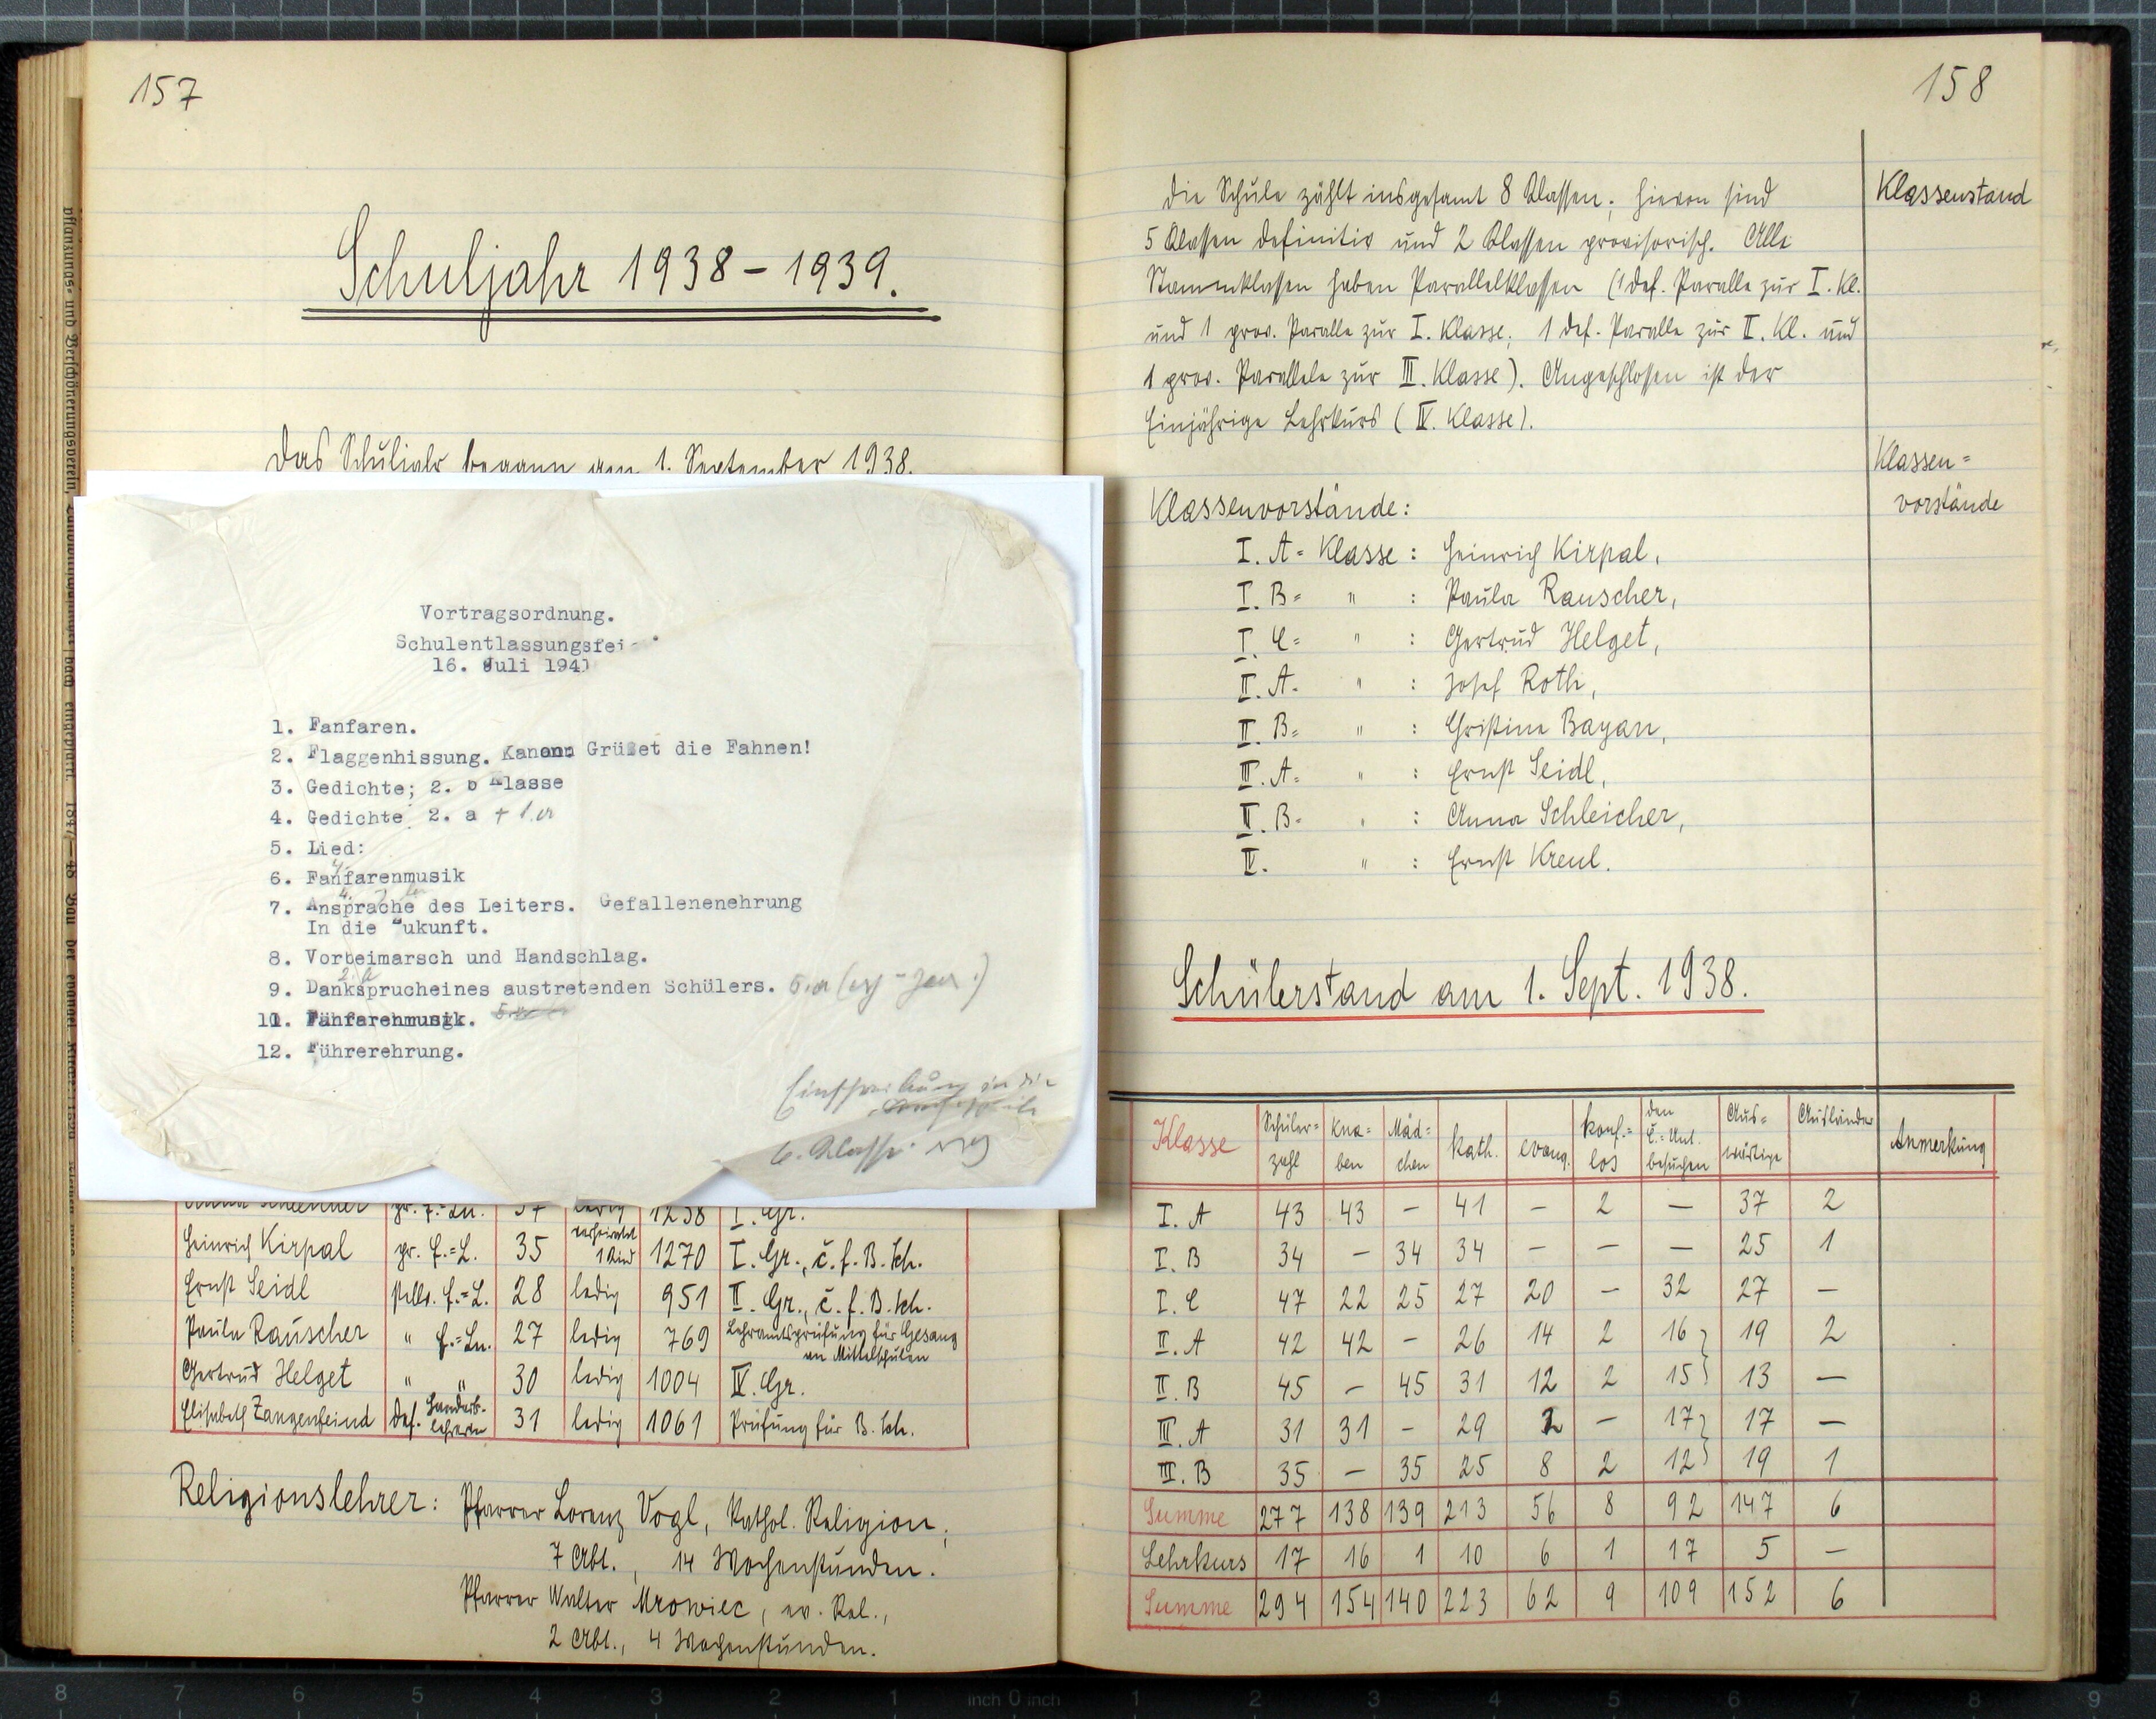 157
Schuljahr 1938 – 1939.
Das Schuljahr begann am 1. September 1938.
Vortragsordnung.
Schulentlassungsfei
16. Juli 1941
1. Fanfaren.
2. Flaggenhissung. Kanon: Grüßet die Fahnen!
3. Gedichte; 2. b Klasse
4. Gedichte 2. a + 1. a
5. Lied:
6. Fanfarenmusik
7. Ansprache des Leiters. Gefallenenehrung
In die Zukunft.
8. Vorbeimarsch und Handschlag.
9. Dankspruch eines austretenden Schülers. 5. a
11. Fanfarenmusik.
12. Führerehrung.
Einschreibung in die
6. Klasse
gr. F.=Ln. 37 ledig 1238 I. Gr.
Heinrich Kirpal gr. F.=L. 35 verheiratet 1 Kind 1270 I. Gr., č. f. B. Sch.
Ernst Seidl stellv. F.=L. 28 ledig 951 II. Gr., č. f. B. Sch.
Paula Rauscher " F.=Ln. 27 ledig 769 Lehramtsprüfung für Gesang
an Mittelschulen
Gertrud Helget " " 30 ledig 1004 IV. Gr.
Elisabeth Zangenfeind def. Handarb.-lehrerin 31 ledig 1061 Prüfung für B. Sch.
Religionslehrer: Pfarrer Lorenz Vogl, Kathol. Religion,
7 Abt., 14 Wochenstunden.
Pfarrer Walter Mrowiec, ev. Rel.,
2 Abt., 4 Wochenstunden.
158
Die Schule zählt insgesamt 8 Klassen; hievon sind
5 Klassen definitiv und 2 Klassen provisorisch. Alle
Stammklassen haben Parallelklassen (1 def. Paralle zur I. Kl.
und 1 prov. Paralle zur I. Klasse; 1 def. Paralle zur II. Kl. und
1 prov. Parallele zur III. Klasse). Angeschlossen ist der
Einjährige Lehrkurs (IV. Klasse).
Klassenstand
Klassen=
vorstände
Klassenvorstände:
I. A= Klasse : Heinrich Kirpal,
I. B= " : Paula Rauscher,
I. C= " : Gertrud Helget,
II. A= " : Josef Roth,
II. B= " : Christine Bayan,
III. A= " : Ernst Seidl,
II. B= " : Anna Schleicher,
IV. " : Ernst Kreul.
Schülerstand am 1. Sept. 1938.
Klasse Schüler=zahl Kna=ben Mäd=chen kath. evang. konf.=los den Č.=Unt. besuchen Aus=wärtige Ausländer Anmerkung
I. A 43 43 – 41 – 2 – 37 2
I. B 34 – 34 34 – – – 25 1
I. C 47 22 25 27 20 – 32 27 –
II. A 42 42 – 26 14 2 16 19 2
II. B 45 – 45 31 12 2 15 13 –
III. A 31 31 – 29 2 – 17 17 –
III. B 35 – 35 25 8 2 12 19 1
Summe 277 138 139 213 56 8 92 147 6
Lehrkurs 17 16 1 10 6 1 17 5 –
Summe 294 154 140 223 62 9 109 152 6
8 7 6 5 4 3 2 1 inch 0 inch 1 2 3 4 5 6 7 8 9